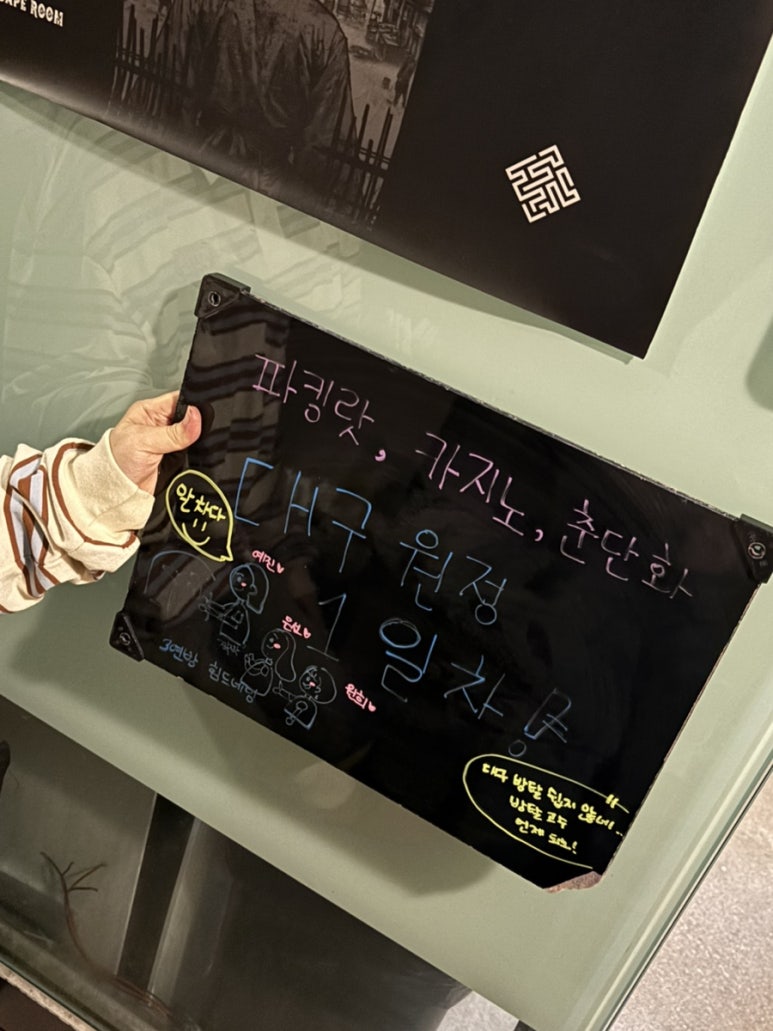 CAPE ROOM
파킹랏, 카지노, 춘단화
대구 원정
1일차
알차다
예진♥
은선♥
원희♥
3연방 힘드네덩
대구 방탈 쉽지 않네..
방탈 고수
언제 되노!